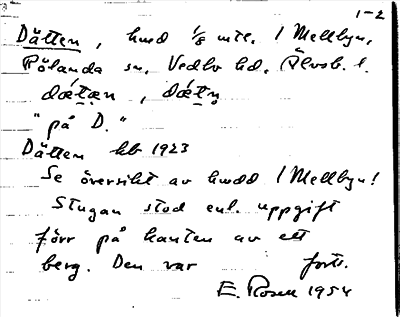 1-2
Dätten, hmd 1/8 mtl. / Mellbyn,
Rölanda sn. Vedbo hd. Älvsb. l.
dǽtæn, dǽtn̥
"på D."
Dätten hb 1923
Se översikt av hmdd / Mellbyn!
Stugan stod enl. uppgift
förr på kanten av ett
berg. Den var forts.
E. Rosell 1954